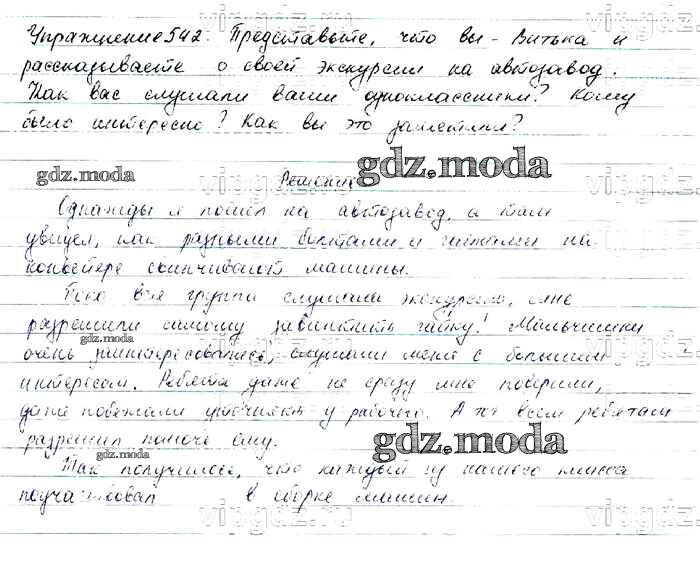 Упражнение 542. Представьте, что вы - Витька и
рассказываете о своей экскурсии на автозавод.
Как вас слушали ваши одноклассники? Кому
было интересно? Как вы это заметили?
gdz.moda
gdz.moda
Решение
Однажды я пошел на автозавод, а там
увидел, как разными болтами и гайками на
конвейере свинчивают машины.
Пока вся группа слушала экскурсию, мне
разрешили самому завинтить гайку! Мальчишки
gdz.moda
очень заинтересовались, слушали меня с большим
интересом. Ребята даже не сразу мне поверили,
даже побежали уточнять у рабочего. А он всем ребятам
разрешил помочь ему.
gdz.moda
gdz.moda
Так получилось, что каждый из нашего класса
поучаствовал в сборке машин.